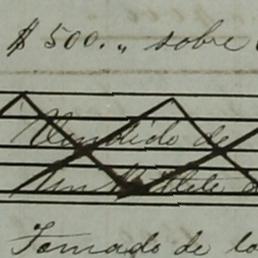 $500.,, sobre
Vendido de
un Billete
Tomado de lo